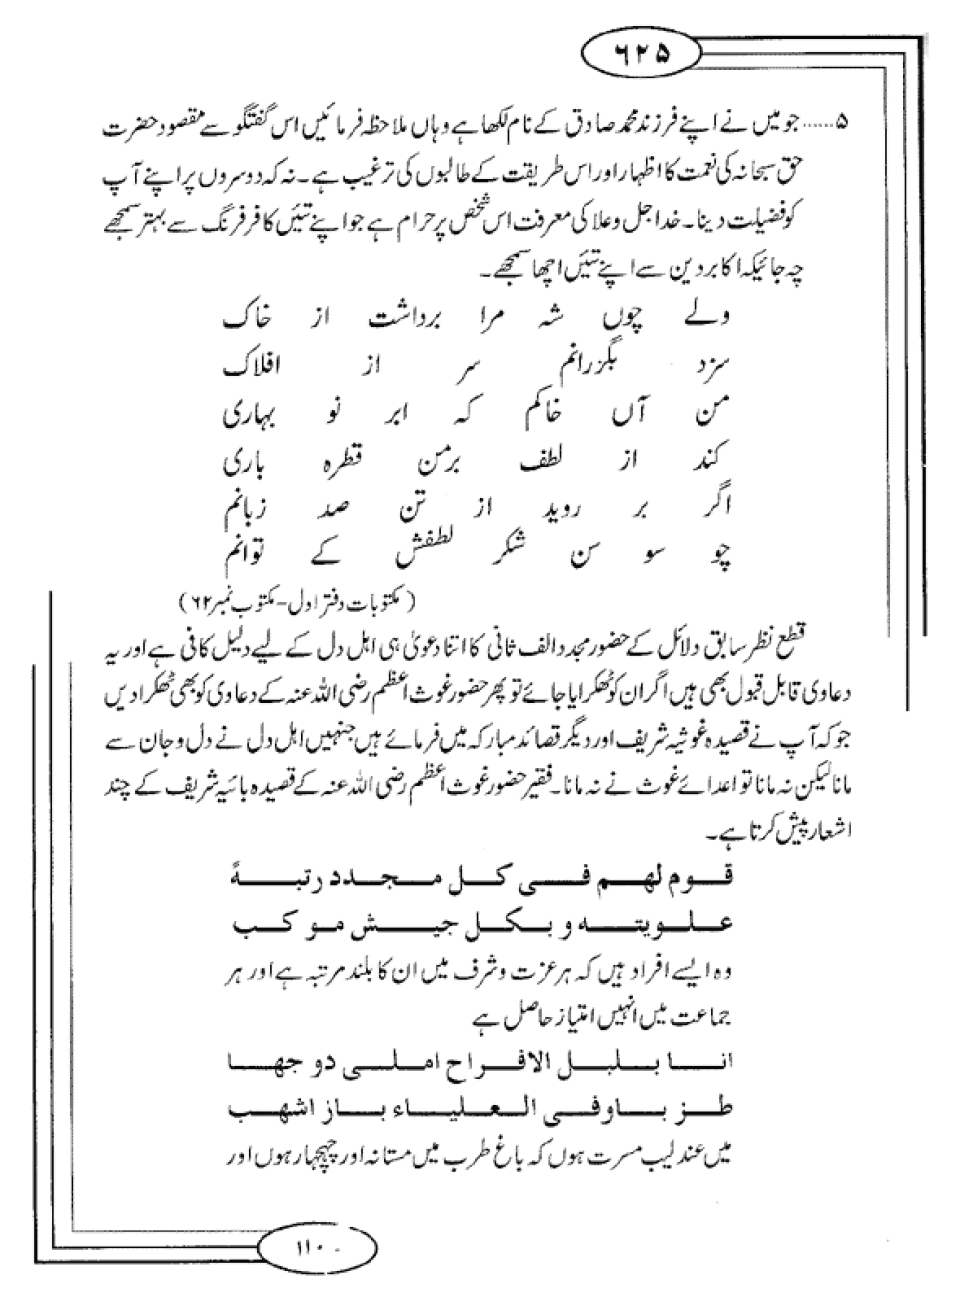 ۶۲۵
۵......جو میں نے اپنے فرزند محمد صادق کے نام لکھا ہے وہاں ملاحظہ فرمائیں اس گفتگو سے مقصود حضرت
حق سبحانہ کی نعمت کا اظہار اور اس طریقت کے طالبوں کی ترغیب ہے۔ نہ کہ دوسروں پر اپنے آپ
کو فضیلت دینا۔ خدا جل و علا کی معرفت اس شخص پر حرام ہے جو اپنے تئیں کافر فرنگ سے بہتر سمجھے
چہ جائیکہ اکابر دین سے اپنے تئیں اچھا سمجھے۔
ولے چوں شہ مرا برداشت از خاک
سزد بگزرانم سر از افلاک
من آں خاکم کہ ابر نو بہاری
کند از لطف برمن قطرہ باری
اگر بر روید از تن صد زبانم
چو سو سن شکر لطفش کے توانم
(مکتوبات دفتر اول-مکتوب نمبر ۶۲)
قطع نظر سابق دلائل کے حضور مجدد الف ثانی کا اتنا دعویٰ ہی اہل دل کے لیے دلیل کافی ہے اور یہ
دعاوی قابل قبول بھی ہیں اگر ان کو ٹھکرایا جائے تو پھر حضور غوث اعظم رضی اللہ عنہ کے دعاوی کو بھی ٹھکرادیں
جو کہ آپ نے قصیدہ غوثیہ شریف اور دیگر قصائد مبارکہ میں فرمائے ہیں جنہیں اہل دل نے دل و جان سے
مانا لیکن نہ مانا تو اعدائے غوث نے نہ مانا۔ فقیر حضور غوث اعظم رضی اللہ عنہ کے قصیدہ بائیہ شریف کے چند
اشعار پیش کرتا ہے۔
قوم لهم فی کل مجدد رتبةً
علویته و بکل جیش موکب
وہ ایسے افراد ہیں کہ ہر عزت و شرف میں ان کا بلند مرتبہ ہے اور ہر
جماعت میں انہیں امتیاز حاصل ہے
انا بلبل الافراح املی دو جها
طز باوفی العلیاء باز اشهب
میں عندلیب مسرت ہوں کہ باغ طرب میں مستانہ اور چہچہار ہوں اور
۱۱۰